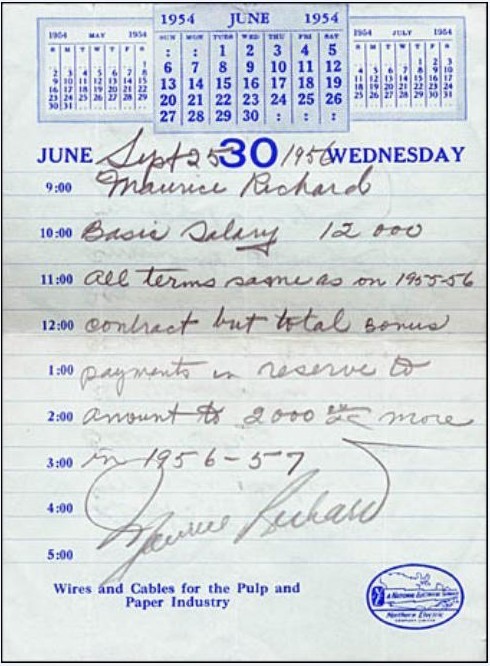 1954 MAY 1954
S M T W T F S
1
2 3 4 5 6 7 8
9 10 11 12 13 14 15
16 17 18 19 20 21 22
23 24 25 26 27 28 29
30 31
1954 JUNE 1954
SUN MON TUES WED THU FRI SAT
: : 1 2 3 4 5
6 7 8 9 10 11 12
13 14 15 16 17 18 19
20 21 22 23 24 25 26
27 28 29 30 : : :
1954 JULY 1954
S M T W T F S
1 2 3
4 5 6 7 8 9 10
11 12 13 14 15 16 17
18 19 20 21 22 23 24
25 26 27 28 29 30 31
JUNE 30 WEDNESDAY
Sept 25 / 1956
9:00 Maurice Richard
10:00 Basic Salary 12 000
11:00 All terms same as on 1955-56
12:00 contract but total Bonus
1:00 payments in reserve to
2:00 amount to 2000 more
3:00 in 1956-57
4:00 Maurice Richard
5:00
Wires and Cables for the Pulp and
Paper Industry
A NATIONAL ELECTRICAL SERVICE
Northern Electric
COMPANY LIMITED